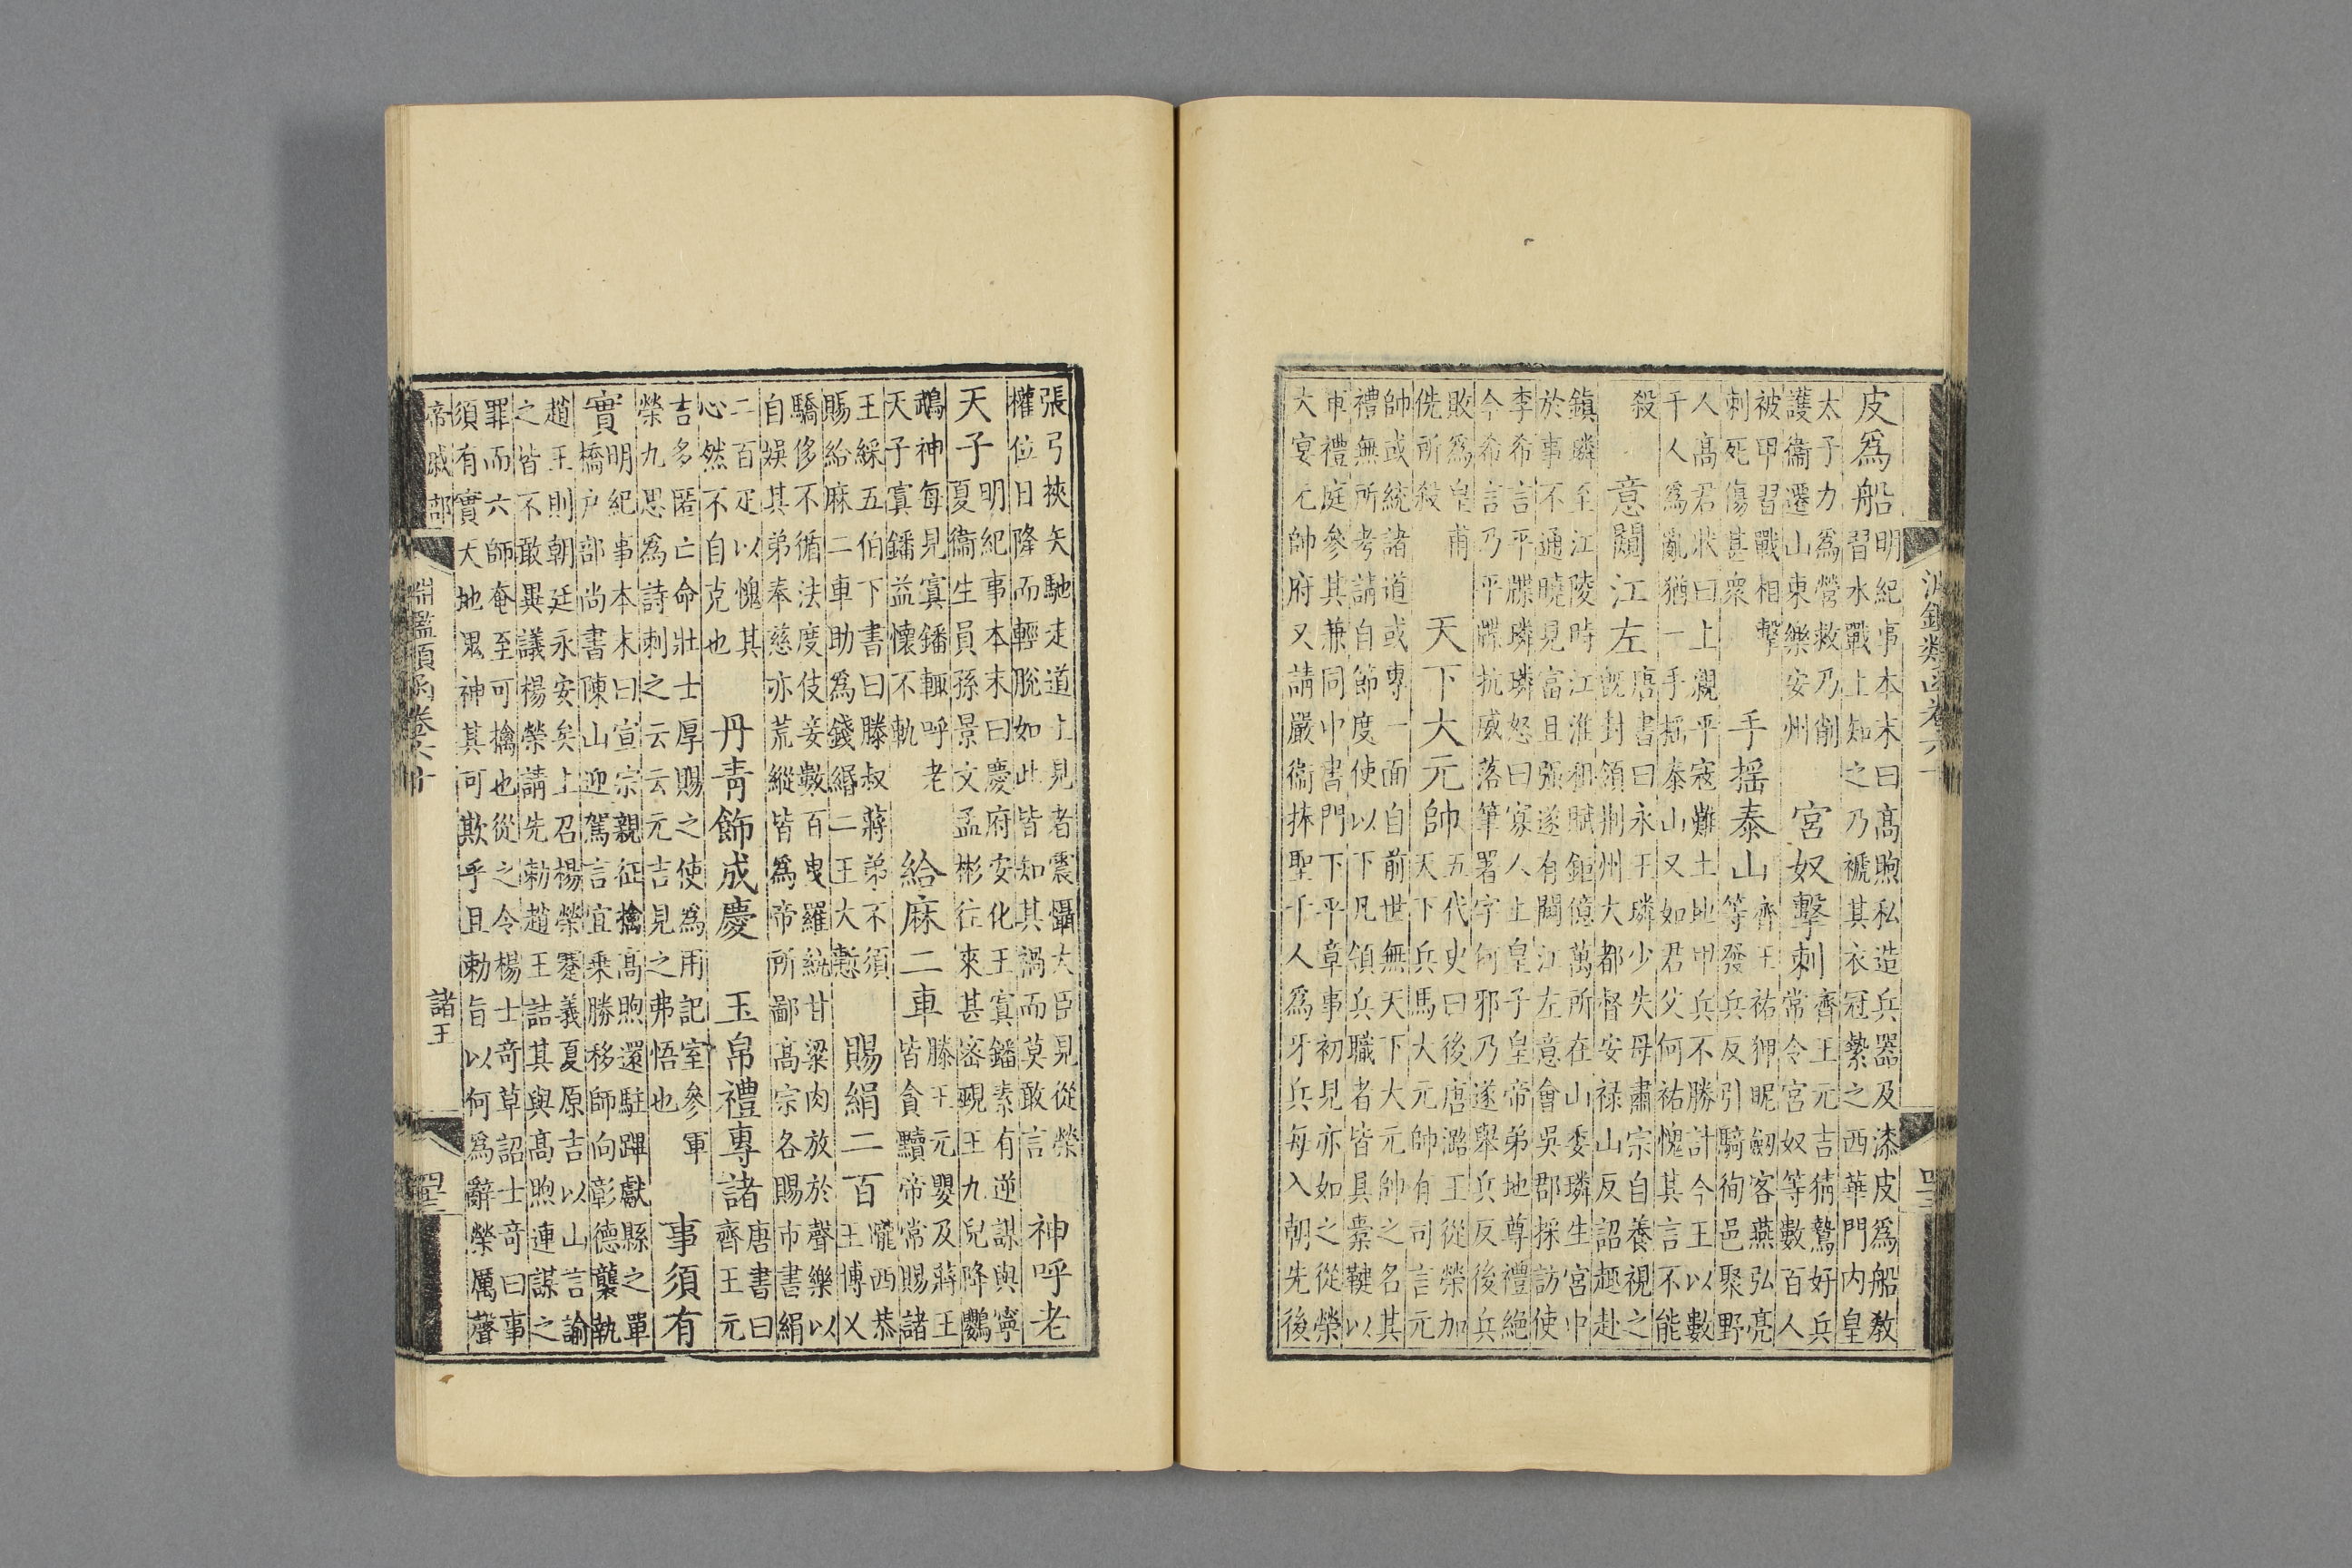 皮爲船
明紀事本末曰高煦私造兵器及漆皮爲船教
習水戰上知之乃褫其衣冠縶之西華門内皇
太子力爲營救乃削
護衞遷山東樂安州
宮奴擊刺
齊王元吉猜鷙好兵
常令宮奴等數百人
被甲習戰相擊
刺死傷甚衆
手揺泰山
齊王祐狎昵劒客燕弘亮
等發兵反引騎徇邑聚野
人高君狀曰上親平寇難土地甲兵不勝計今王以數
千人爲亂猶一手揺泰山又如君父何祐愧其言不能
殺
意闚江左
唐書曰永王璘少失母肅宗自養視之
既封領荆州大都督安禄山反詔趣赴
鎮璘至江陵時江淮租賦鉅億萬所在山委璘生宮中
於事不通曉見富且彊遂有闚江左意會吳郡採訪使
李希言平牒璘璘怒曰寡人上皇子皇帝弟地尊禮絶
今希言乃平牒抗威落筆署字何邪乃遂舉兵反後兵
敗爲皇甫
侁所殺
天下大元帥
五代史曰後唐潞王從榮加
天下兵馬大元帥有司言元
帥或統諸道或專一面自前世無天下大元帥之名其
禮無所考請自節度使以下凡領兵職者皆具櫜鞬以
軍禮庭參其兼同中書門下平章事初見亦如之從榮
大宴元帥府又請嚴衞捧聖千人爲牙兵每入朝先後
張弓挾矢馳走道上見者震懾大臣見從榮
權位日隆而輕脫如此皆知其禍而莫敢言
神呼老
天子
明紀事本末曰慶府安化王寘鐇素有逆謀與寧
夏衞生員孫景文孟彬往來甚密覡王九兒降鸚
鵡神每見寘鐇輒呼老
天子寘鐇益懷不軌
給麻二車
滕王元嬰及蔣王
皆貪黷帝常賜諸
王綵五伯下書曰滕叔蔣弟不須
賜給麻二車助爲錢緡二王大慙
賜絹二百
隴西恭
王博乂
驕侈不循法度伎妾數百曳羅紈甘粱肉放於聲樂以
自娛其弟奉慈亦荒縱皆爲帝所鄙高宗各賜市書絹
二百疋以愧其
心然不自克也
丹靑飾成慶
玉帛禮專諸
唐書曰
齊王元
吉多匿亡命壯士厚賜之使爲用記室參軍
榮九思爲詩刺之云云元吉見之弗悟也
事須有
實
明紀事本末曰宣宗親征擒高煦還駐蹕獻縣之單
橋戶部尚書陳山迎駕言宜乘勝移師向彰德襲執
趙王則朝廷永安矣上召楊榮蹇義夏原吉以山言諭
之皆不敢異議楊榮請先勅趙王詰其與高煦連謀之
罪而六師奄至可擒也從之令楊士竒草詔士竒曰事
須有實天地鬼神其可欺乎且勅旨以何爲辭榮厲聲
帝戚部
淵鑑類函卷六十
諸王